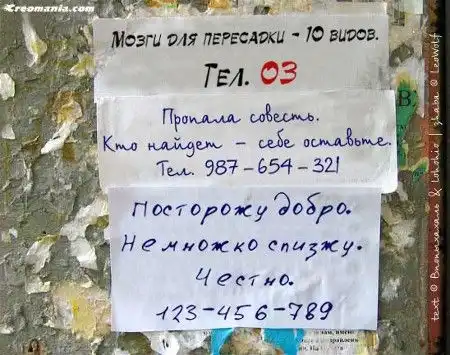 Creomania.com
Мозги для пересадки - 10 видов.
Тел. 03
Пропала совесть.
Кто найдет - себе оставьте.
Тел. 987-654-321
Посторожу добро.
Немножко спизжу.
Честно.
123-456-789
text © Вполыхахаль & lohohio | zhaba © Leowolf